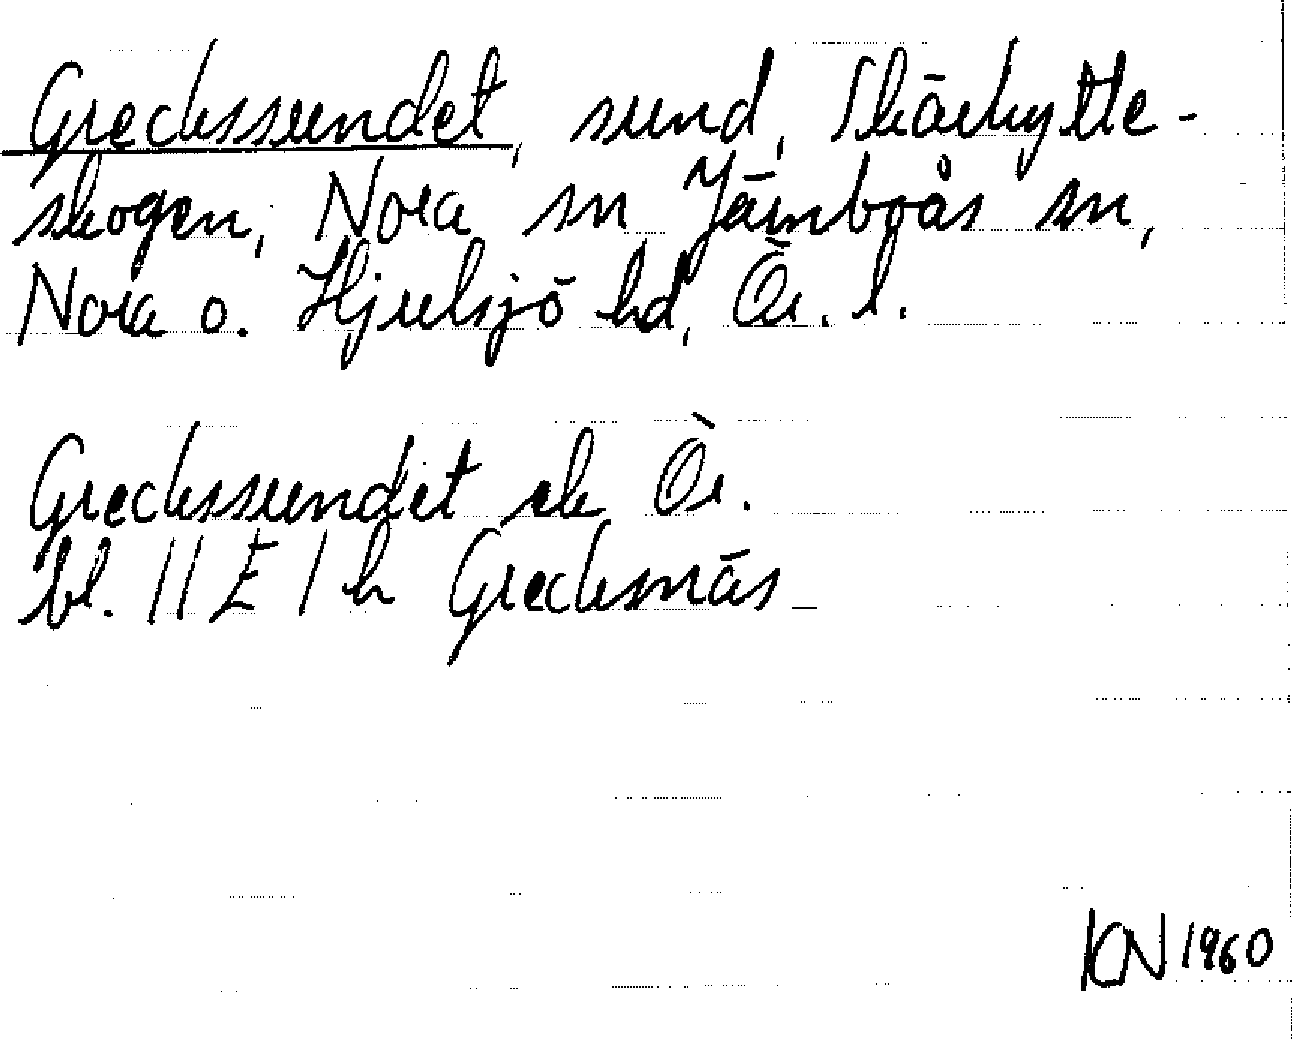 Grecksundet, sund, Skärhytte-
skogen, Nora sn, Järnboås sn,
Nora o. Hjulsjö hd, Ör. l.
Greckssundet ek Ör.
bl. 11 E 1 h Grecksnäs
KN 1960